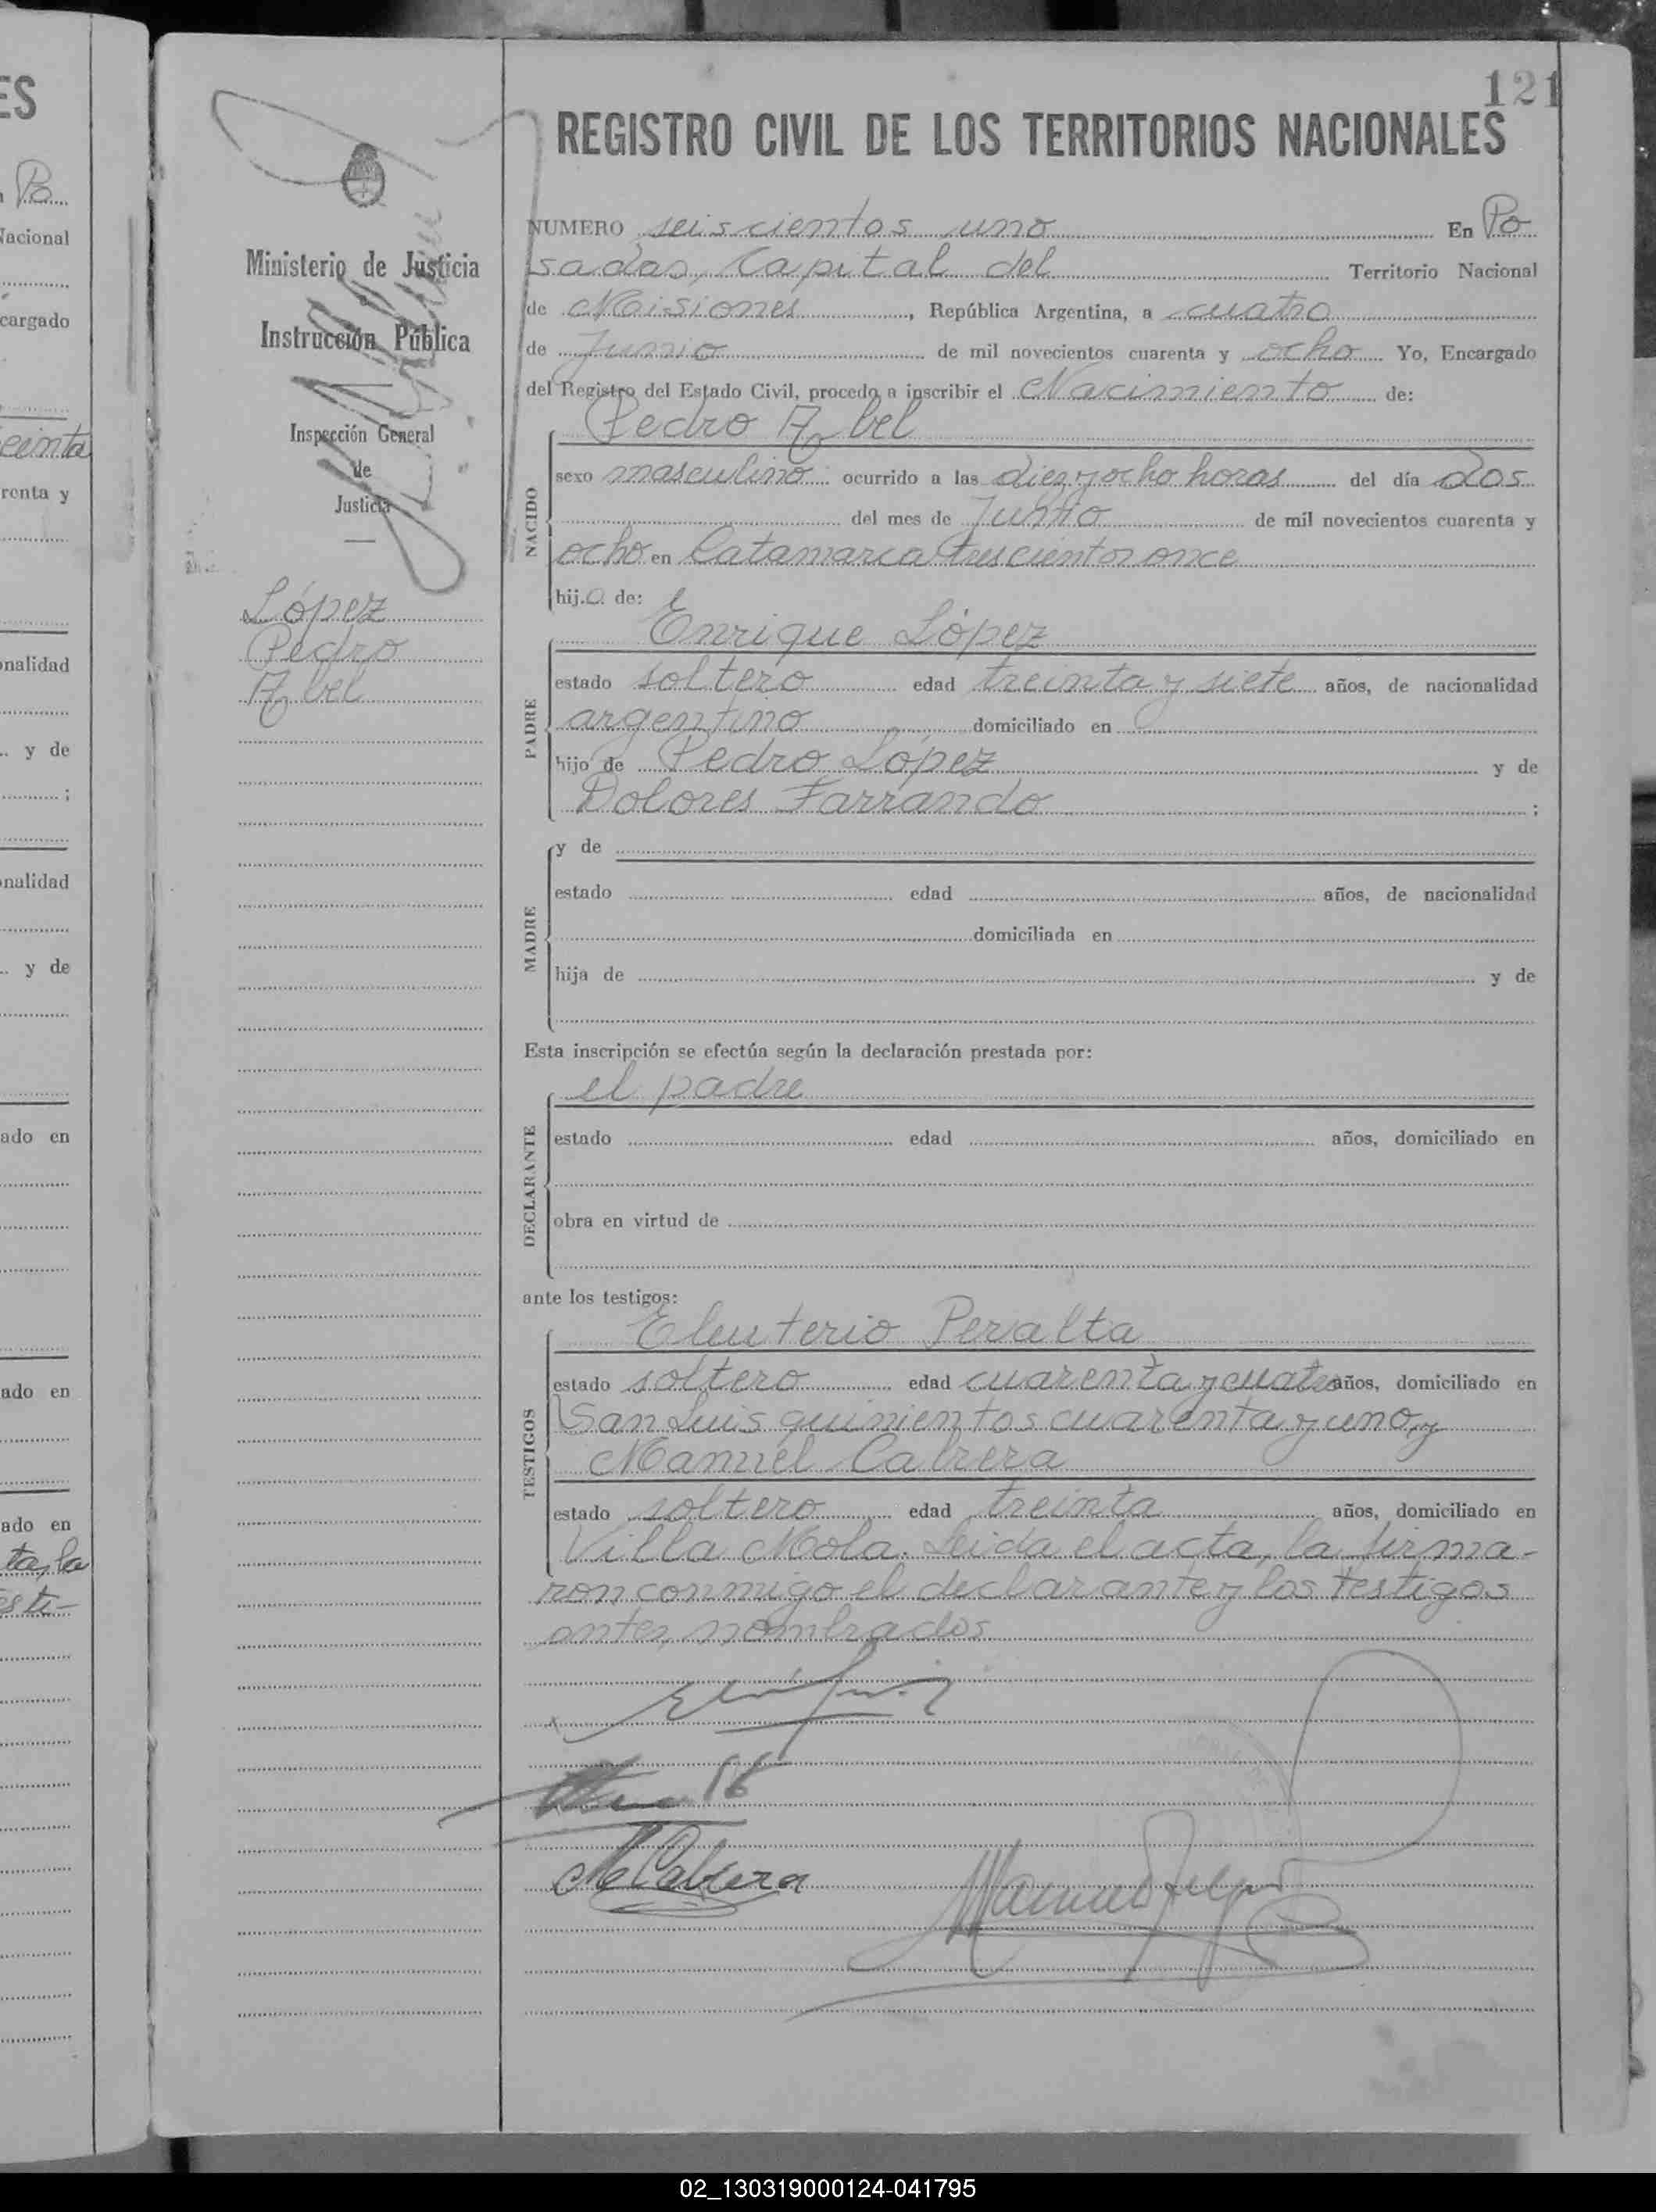 121
REGISTRO CIVIL DE LOS TERRITORIOS NACIONALES
Ministerio de Justicia
e
Instrucción Pública
Inspección General
de
Justicia
López
Pedro
Abel
NUMERO seiscientos uno En Po
sadas, Capital del Territorio Nacional
de Misiones, República Argentina, a cuatro
de Junio de mil novecientos cuarenta y ocho Yo, Encargado
del Registro del Estado Civil, procedo a inscribir el Nacimiento de:
NACIDO
Pedro Abel
sexo masculino ocurrido a las diez y ocho horas del día dos
del mes de Junio de mil novecientos cuarenta y
ocho en Catamarca trescientos once
hijo de:
PADRE
Enrique López
estado soltero edad treinta y siete años, de nacionalidad
argentino domiciliado en
hijo de Pedro López y de
Dolores Farrando ;
MADRE
y de
estado edad años, de nacionalidad
domiciliada en
hija de y de
Esta inscripción se efectúa según la declaración prestada por:
DECLARANTE
el padre
estado edad años, domiciliado en
obra en virtud de
ante los testigos:
TESTIGOS
Eleuterio Peralta
estado soltero edad cuarenta y cuatro años, domiciliado en
San Luis quinientos cuarenta y uno y
Manuel Cabrera
estado soltero edad treinta años, domiciliado en
Villa Mola. Leida el acta, la firma-
ron conmigo el declarante y los testigos
antes nombrados
M Cabrera
Manuel
ES
Po
Nacional
cargado
einta
renta y
onalidad
y de
;
onalidad
y de
ado en
ado en
ado en
ta, la
esti-
02_130319000124-041795